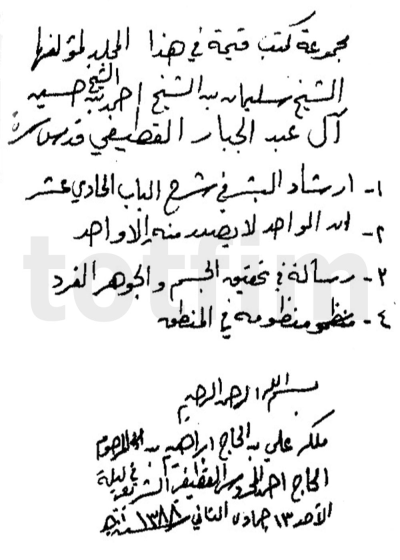 مجموعة كتب قيمة في هذا المجلد لمؤلفها
الشيخ سليمان بن الشيخ احمد بن الشيخ حسين
آل عبد الجبار القطيفي قدس سره
١- ارشاد البشر في شرح الباب الحادي عشر
٢- ان الواحد لا يصدر منه إلا واحد
٣- رسالة في تحقيق الجسم والجوهر الفرد
٤- منظومة في المنطق
totfim
بسم الله الرحمن الرحيم
ملكه علي بن الحاج ابراهيم بن المرحوم
الحاج احمد القطيف في ليلة
الأحد ١٣ جمادى الثاني سنة ١٣٨٨